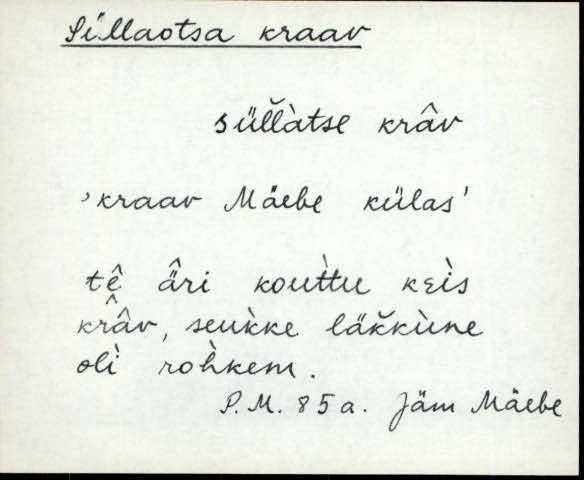 Sillaotsa kraav
sül̆l̀àtse krâv
'kraav Mäebe külas'
tê ä̂ri kout̀tu kɛis̀
krâv, seuk̀ke läk̆kùne
olì roh̀kem.
P.M. 85 a. Jäm Mäebe